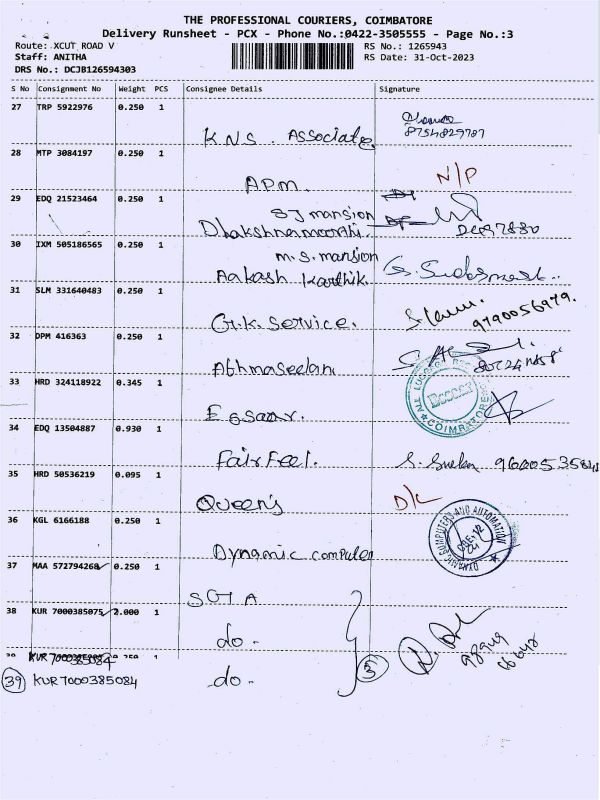 THE PROFESSIONAL COURIERS, COIMBATORE
Delivery Runsheet - PCX - Phone No.:0422-3505555 - Page No.:3
Route: XCUT ROAD V RS No.: 1265943
Staff: ANITHA RS Date: 31-Oct-2023
DRS No.: DCJB126594303
S No Consignment No Weight PCS Consignee Details Signature
27 TRP 5922976 0.250 1
K.N.S. Associate 8754829787
28 MTP 3084197 0.250 1
APM. N/P
29 EDQ 21523464 0.250 1
SJ mansion
Dhakshnamoorthi.
30 IXM 505186565 0.250 1
M.S. mansion
Aakash Karthik.
31 SLM 331640483 0.250 1
G.K. Service. 9790056979.
32 DPM 416363 0.250 1
33 HRD 324118922 0.345 1
COIMBATORE
34 EDQ 13504887 0.930 1
Fair Feel.
35 HRD 50536219 0.095 1
Queen's D/L
36 KGL 6166188 0.250 1
Dynamic computer
DYNAMIC COMPUTERS AND AUTOMATION
37 MAA 572794268 0.250 1
SGTA
38 KUR 7000385075 2.000 1
do.
KUR 7000385084
39 KUR 7000385084
do. 3